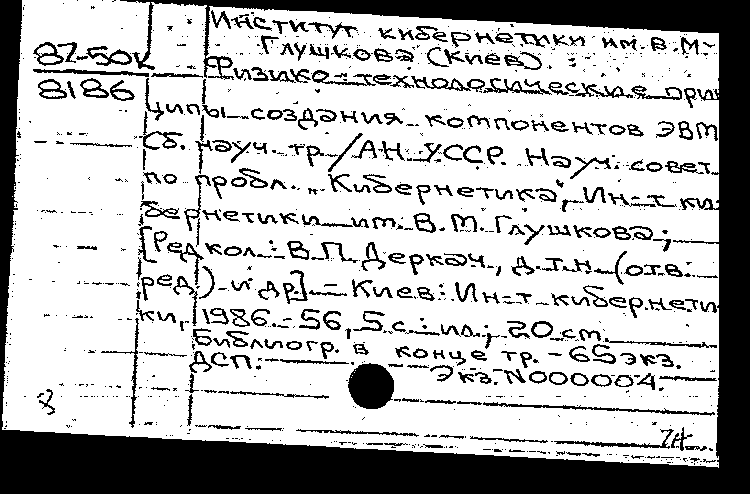 Институт кибернетики им. В.М.
Глушкова (Киев).
87-50к
Физико-технологические прин
8186
ципы создания компонентов ЭВМ
Сб. науч. тр. / АН УССР. Науч. совет
по пробл. „Кибернетика", Ин-т ки-
бернетики им. В.М. Глушкова;
[Редкол.: В.П. Деркач, д.т.н. (отв.
ред.) и др]. - Киев: Ин-т кибернети-
ки, 1986. - 56, 5 с.: ил.; 20 см.
Библиогр. в конце тр. - 65 экз.
ДСП.
Экз. N000004.
8